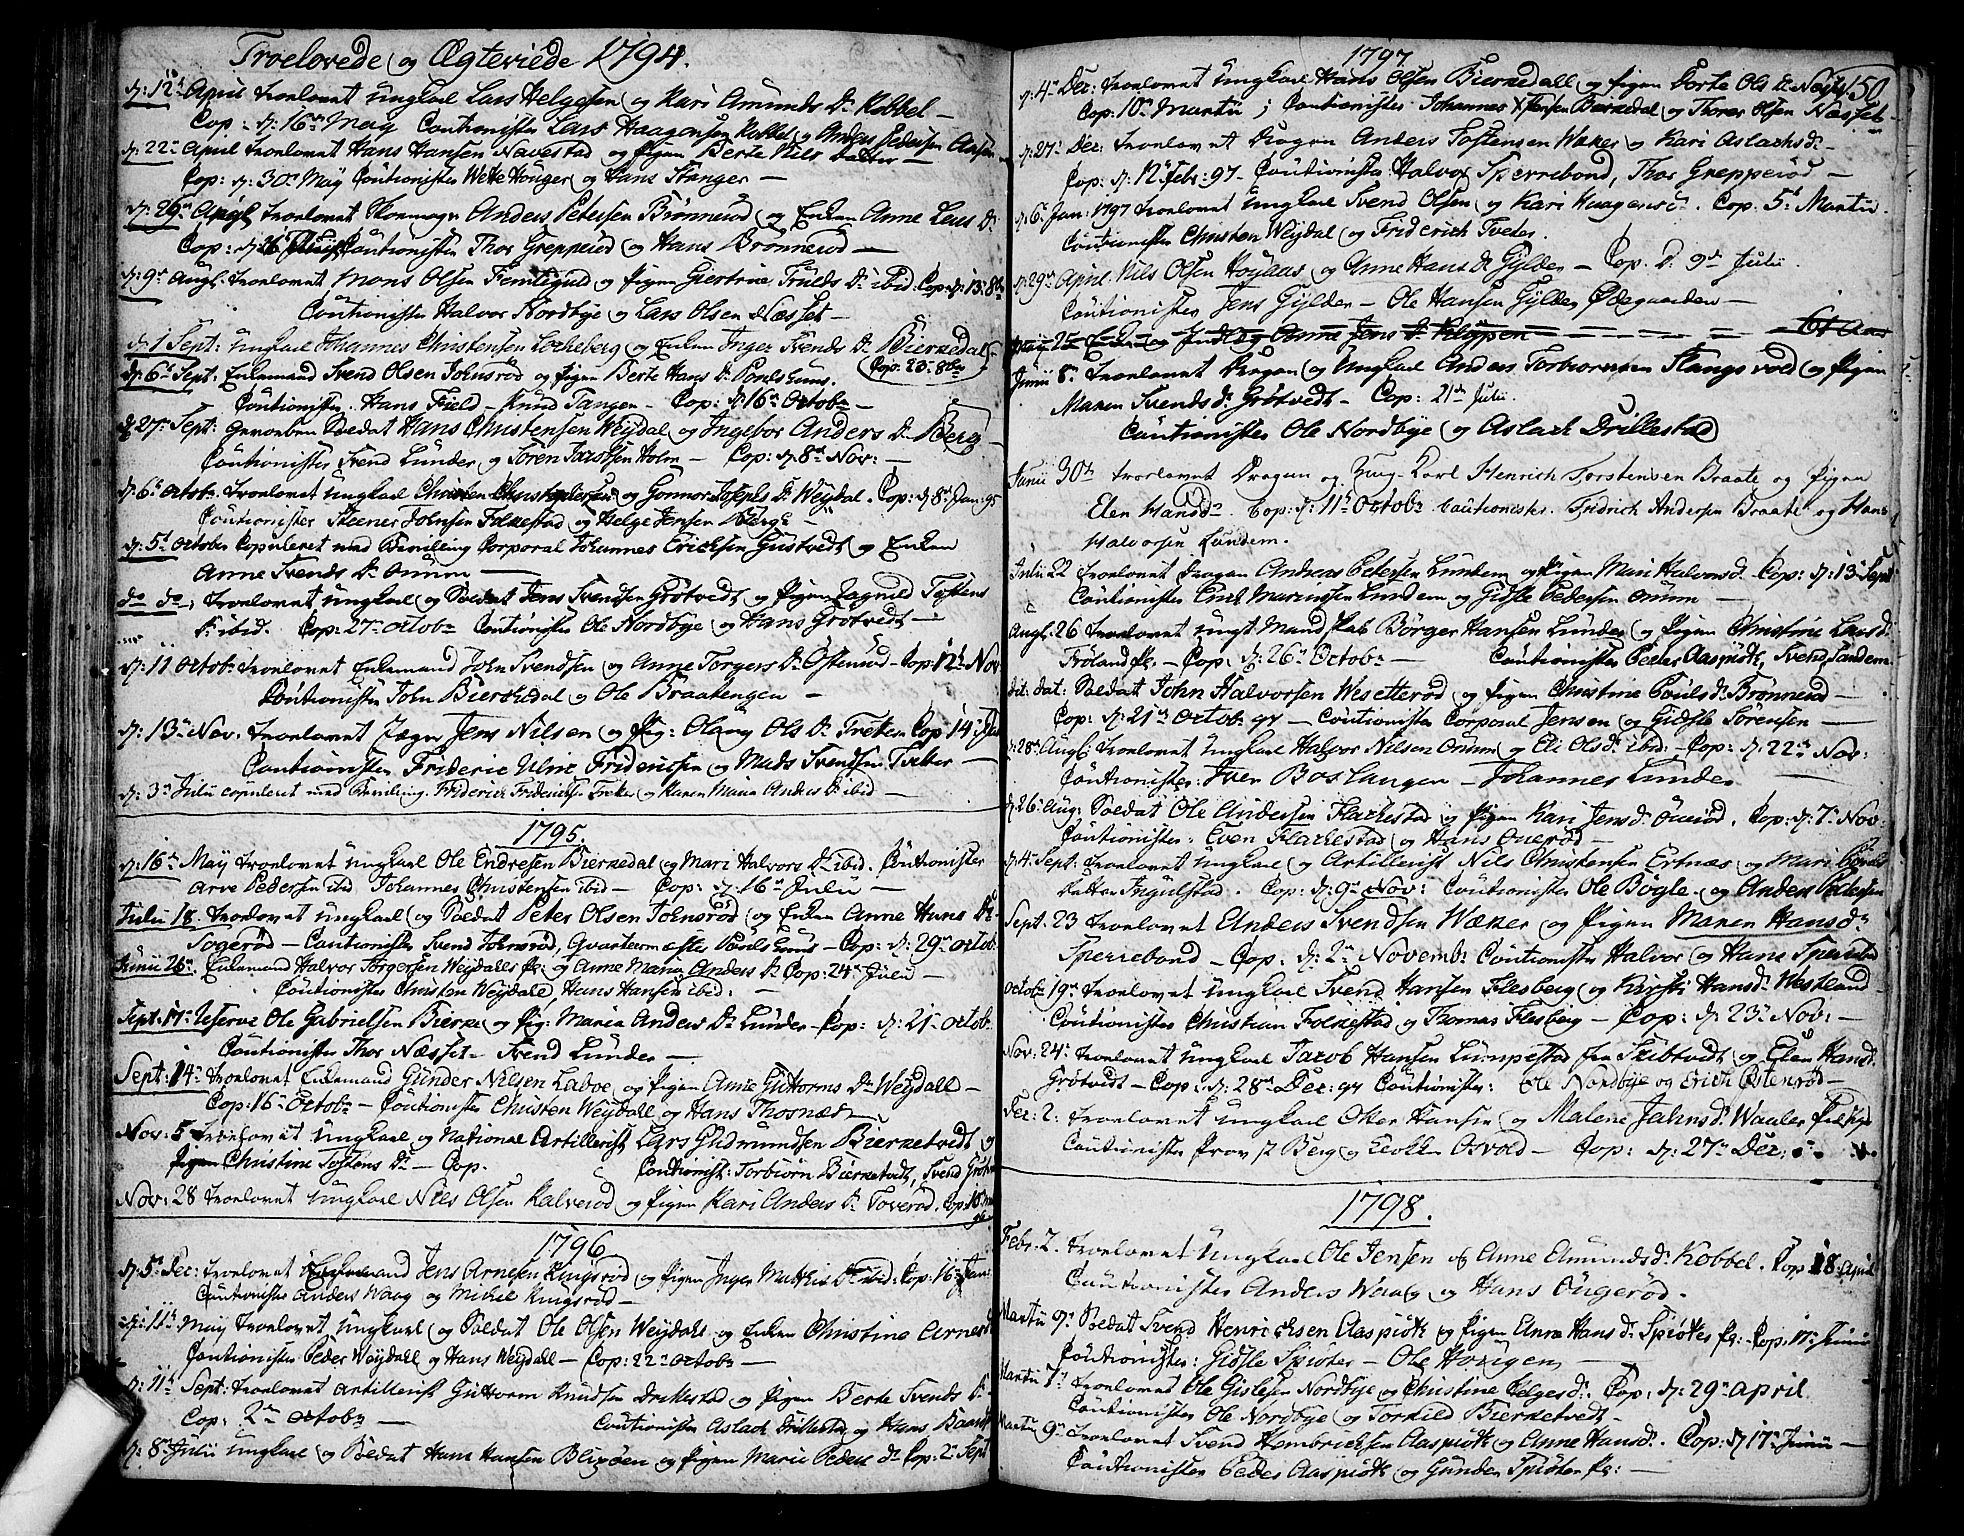 Troelovede og Ægteviede 1794.
d: 12te April troelovet Ungkarl Lars Helgesen og Kari Amunds Dr Kabbel —
Cop: d: 16de May Coutionister Lars Haagensen Kabbel og Anders Pedersen Aasen
d: 22de April troelovet Hans Hansen Navestad og Pigen Berte Nils datter —
Cop: d: 30te May Coutionister Wette Houger og Hans Stanger —
d: 29de April troelovet Skomager Anders Petersen Brønnerød og Enken Anne Lars Dr
Cop: d: 26 Coutionister Thor Grepperød og Hans Brønnerød —
d: 9de Augl. troelovet Mons Olsen Femtegud og Pigen Giertrue Trulds Dr ibid. Cop: d: 13: 8br
Coutionister Halvor Nordbye og Lars Olsen Næsset —
d: 1 Sept: Ungkarl Johannes Christensen Locheberg og Enken Inger Svends Dr Bierkedal
Cop: 23: 8br
d: 6te Sept: Enkemand Svend Olsen Johnsrød og Pigen Berte Hans Dr Poulshuus.
Coutionister Hans Field — Knud Tangen — Cop: d: 16de Octobr —
d: 27de Sept: Gevorben Soldat Hans Christensen Weydal og Ingebor Anders Dr Berg —
Coutionister Svend Lunder og Søren Jacobsen Holm — Cop: d: 8de Nov: —
d: 6te Octobr. troelovet Ungkarl Christen Christophersen og Gonnor Josephs Dr Weydal. Cop: d: 8de Jan: 95
Coutionister Steener Johnsen Folkestad og Helge Jensen Berg —
d: 5te October Copuleret med Bevilling Corporal Johannes Ericksen Gustvedt og Enken
Anne Svends Dr Omum —
do do, troelovet Ungkarl og Soldat Jens Svendsen Grøtvedt og Pigen Ragnild Tostens
Dr ibid. Cop: 27de Octobr Coutionister Ole Nordbye og Hans Grøtvedt —
d: 11 Octobr. troelovet Enkemand John Svendsen og Anne Torgers Dr Østenrød — Cop: 12te Nov
Coutionister John Bierkedal og Ole Braatengen —
d: 13de Nov. troelovet Jæger Jens Nilsen og Pig: Olaug Ols Dr Treker Cop 14de
Coutionister Frideric Ulric Fridericsen og Mads Svendsen Tveter —
d: 3de Julii copuleret med Bevilling. Friderich Friderichsen og Karen Maria Anders Dr ibid —
1795.
d: 16de May troelovet Ungkarl Ole Endresen Bierkedal og Mari Halvors Dr ibid. Coutionister
Arve Pedersen ibid Johannes Christensen ibid — Cop: d: 16de Julii —
Julii 18. troelovet Ungkarl og Soldat Peter Olsen Johnsrød og Enken Anne Hans Dr
Sogerød — Coutionister Svend Johnsrød, Quarteermester Poulshuus — Cop: d: 29de Octobr.
Junii 26de, Enkemand Halvor Torgersen Weydalls Pl: og Anne Maria Anders Dr Cop: 24de Julii —
Coutionister Christen Weydall, Hans Hansen ibid: —
Sept: 11te Reserve Ole Gabrielsen Bierke og Pig: Maria Anders Dr Lunder — Cop: d: 21de Octobr.
Coutionister Thor Næsset — Svend Lunder —
Sept: 14de troelovet Enkemand Gunder Nilsen Laboe, og Pigen Anne Guttorms Dr Weydall —
Cop: 16de Octobr — Coutionister Christen Weydall og Hans Thosnæs
Nov: 5 troelovet Ungkarl og National Artillerist Lars Gudmundsen Bierketvedt og
Pigen Christine Tostens Dr — Cop. Coutionist: Torbiørn Bierketvedt, Svend Grøtv
Nov: 28 troelovet Ungkarl Niels Olsen Kalverød og Pigen Kari Anders Dr Toverød. Cop: 10
1796
d: 5te Dec: troelovet Enkemand Jens Arnesen Kingsrød og Pigen Inger Mathis Dr ibid: Cop: 16de Jan:
Coutionister Anders Waag og Mikel Kingsrød —
d: 11te May troelovet Ungkarl og Soldat Ole Olsen Weydahl og Enken Christine Arnes
Coutionister Peder Weydall og Hans Weydall — Cop: 22de Octobr —
d: 11te Sept: troelovet Artillerist Guttorm Knudsen Drillestad og Pigen Berte Svends Dr
Cop: 2de Octobr — Coutionister Aslach Drillestad og Hans
d: 8de Julii Ungkarl og Soldat Hans Hansen Blixøen og Pigen Marie Peders dr Cop: 2de Sept
1797.
150
d: 4de Dec: troelovet Ungkarl Hans Olsen Bierkedall og Pigen Dorte Ols Dr
Cop: 10de Martii; Coutionister Johannes Jensen Bierkedal og Thorer Olsen Næsset —
d: 27de Dec: troelovet Dragon Anders Tostensen Waker og Kari Aslachsdr —
Cop: d: 12te Febr: 97 — Coutionister Halvor Sperrebond, Thor Grepperød —
d: 6te Jan: 1797 troelovet Ungkarl Svend Olsen og Kari Haagensdr. Cop. 5te Martii.
Coutionister Christen Weydal og Friderich Tveter.
d: 29de April. Nils Olsen Hoylaas og Anne Hans dr Gylder — Cop. d. 9de Julii.
Coutionister Jens Gylder — Ole Hansen Gylder Ødegaarden —
25 Anna Jens dr Kleppen 61 Aar
Junii 8de troelovet Dragon og Ungkarl Anders Torbiørnsen Stangsvold og Pigen
Maren Svends dr Grøtvedt — Cop: 21de Julii.
Coutionister Ole Nordbye og Aslach Drillestad
Junii 30te troelovet Dragun og Ung-Karl Henrich Torstensen Braate og Pigen
Elen Handr. Cop: d: 11te Octobr Coutionister. Fridrich Andersen Braate og Hans
Halvorsen Lundem.
Julii 22 troelovet Dragon Andreas Petersen Lundem og Pigen Mari Halvorsdr. Cop: d: 13de Sept
Coutionister Erich Martinsen Lundem og Gidsle Pedersen Omum —
Augl. 26 troelovet Ungt Mandskab Børger Hansen Lunder og Pigen Christine Larsdr
Frøland Pl: — Cop: d: 26de Octobr — Coutionister Peder Aaspiotk, Svend Sandem
dit. dat: Soldat John Halvorsen Wesetterød og Pigen Christine Poulsdr Brønnerød —
Cop: d: 21de Octobr 97 — Coutionister Corporal Jensen og Gidsle Sørensen —
d: 28de Augl: troelovet Ungkarl Halvor Nilsen Omum og Eli Olsdr ibid. — Cop: d: 22de Nov:
Coutionister: Iver Boslangen — Johannes Lunder —
d: 26: Aug: Soldat Ole Andersen Flackestad og Pigen Kari Jensdr Ouerød. Cop: d: 7de Nov
Coutionister: Even Flackestad og Hans Ouerød —
d: 4: Sept: troelovet Ungkarl og Artillerist Nils Christensen Ertnæs og Mari
datter Ingulstad. Cop: d: 9de Nov: Coutionister Ole Bøgle og Anders Pedersen
Sept: 23 troelovet Anders Svendsen Wæker og Pigen Maren Hansdr
Sperrebond — Cop: d: 2de Novembr. Coutionister Halvor og Hans Sperrebond
Octobr 19de troelovet Ungkarl Svend Hansen Flesberg og Kirsti Hansdr Westland
Coutionister Christian Folkestad og Thomas Flesberg — Cop: d: 23de Nov: —
Nov: 24de troelovet Ungkarl Jacob Hansen Lumpestad fra Skibtvedt og Elen Hansdr.
Grøtvedt — Cop: d: 28de Dec: 97 Coutionister: Ole Nordbye og Erich Østenrød —
Dec: 2: troelovet Ungkarl Otter Hansen og Malene Jahnsdr Waaler
Coutionister Provst Berg og Osvold — Cop: d: 27de Dec:
1798.
Febr: 2. troelovet Ungkarl Ole Jensen og Anne Amundsdr Kobbel. Cop: 18: April
Coutionister Anders Waag og Hans Ougerød.
Martii 9de Soldat Svend Henrichsen Aaspiotk og Pigen Anne Hans dr Spiøtes Pl: Cop: 17de Junii
Coutionister: Gidsle Spiøter — Ole Haugen —
Martii 7de troelovet Ole Gislesen Nordbye og Christine Helgesdr. Cop: d: 29de April.
Coutionister Ole Nordbye og Torkild Bierketvedt —
Martii 9de troelovet Svend Hembricksen Aaspiotk og Anne Hansdr. Cop: d 17de Junii —
Coutionister Peder Aaspiotk og Gunder Spiøter Pl: —